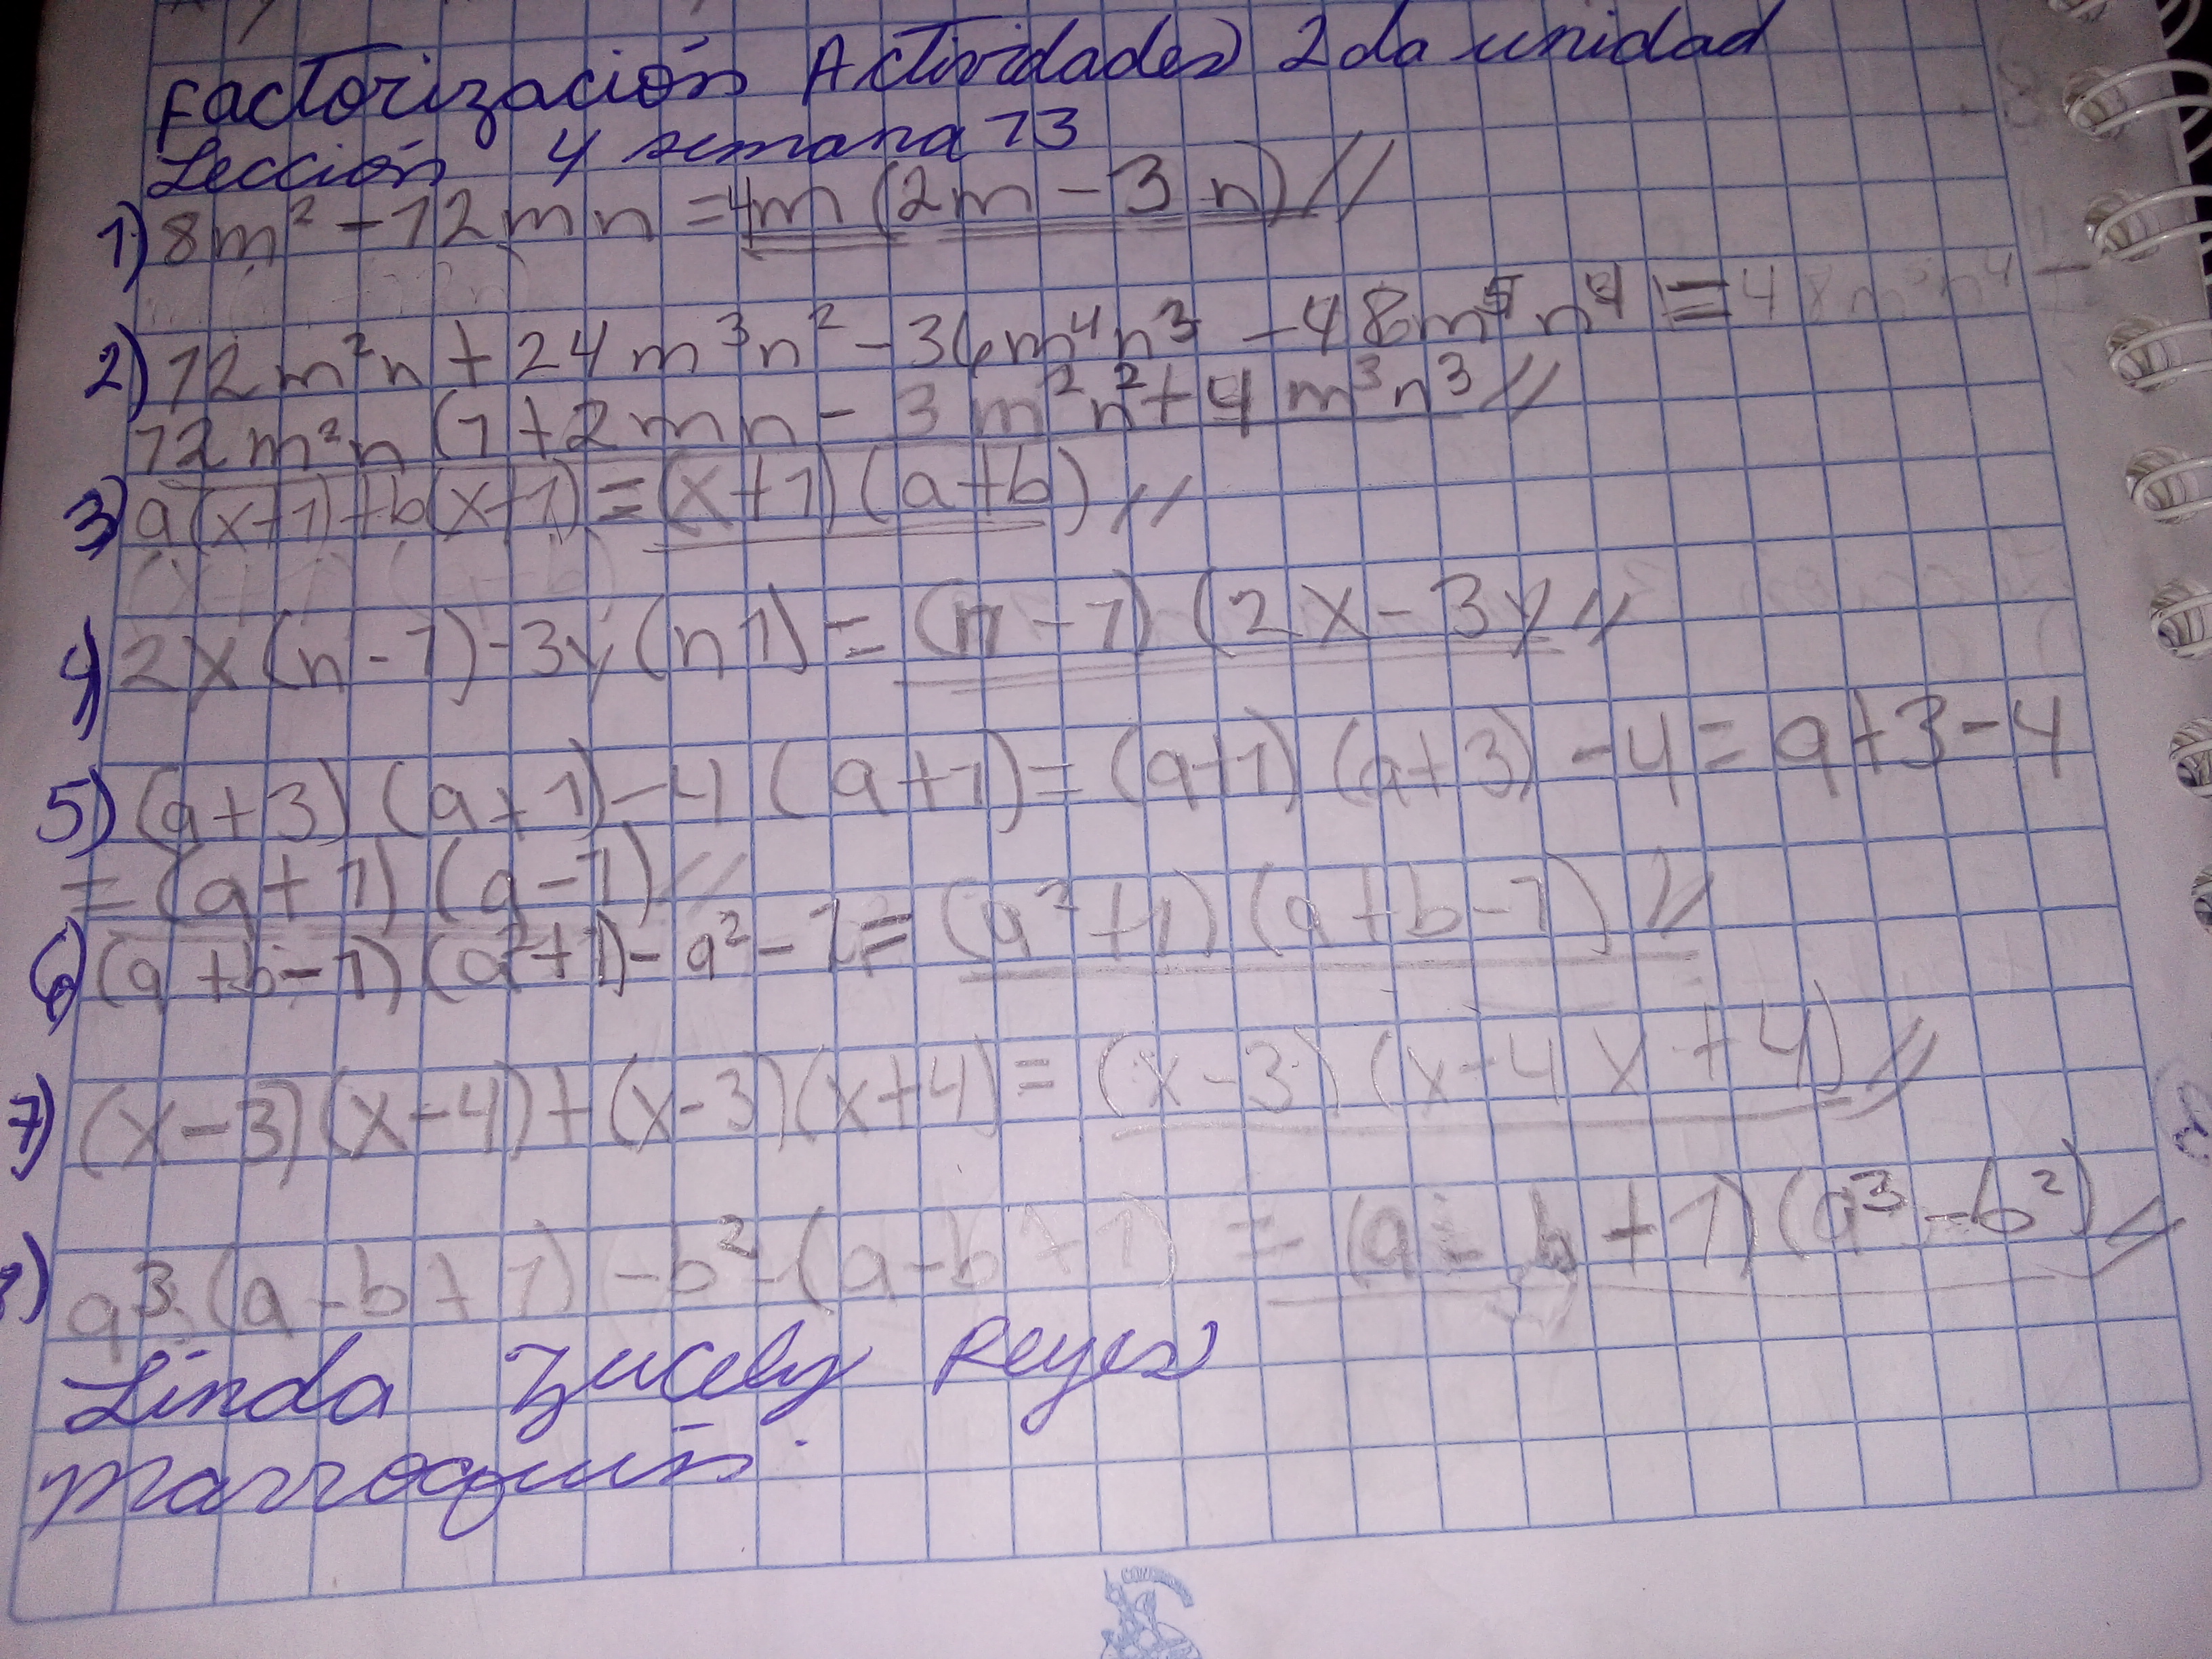 Factorización Actividades 2da unidad
Lección 4 semana 13
1) 8m² - 12mn = 4m (2m - 3n) //
2) 12m²n + 24m³n² - 36m⁴n³ - 48m⁵n⁴ =
12m²n (1 + 2mn - 3m²n² + 4m³n³ //
3) a(x+1) + b(x+1) = (x+1) (a+b) //
4) 2x (n-1) - 3y (n 1) = (n-1) (2x - 3y //
5) (a+3) (a+1) - 4 (a+1) = (a+1) (a+3) - 4 = a+3-4
= (a+1) (a-1) //
6) (a+b-1) (a²+1) - a² - 1 = (a²+1) (a+b-1) //
7) (x-3) (x-4) + (x-3) (x+4) = (x-3) (x-4x+4) //
8) a³ (a-b+1) - b² - (a-b+1) = (a-b+1) (a³-b²) //
Linda Zucely Reyes
Marroquín.